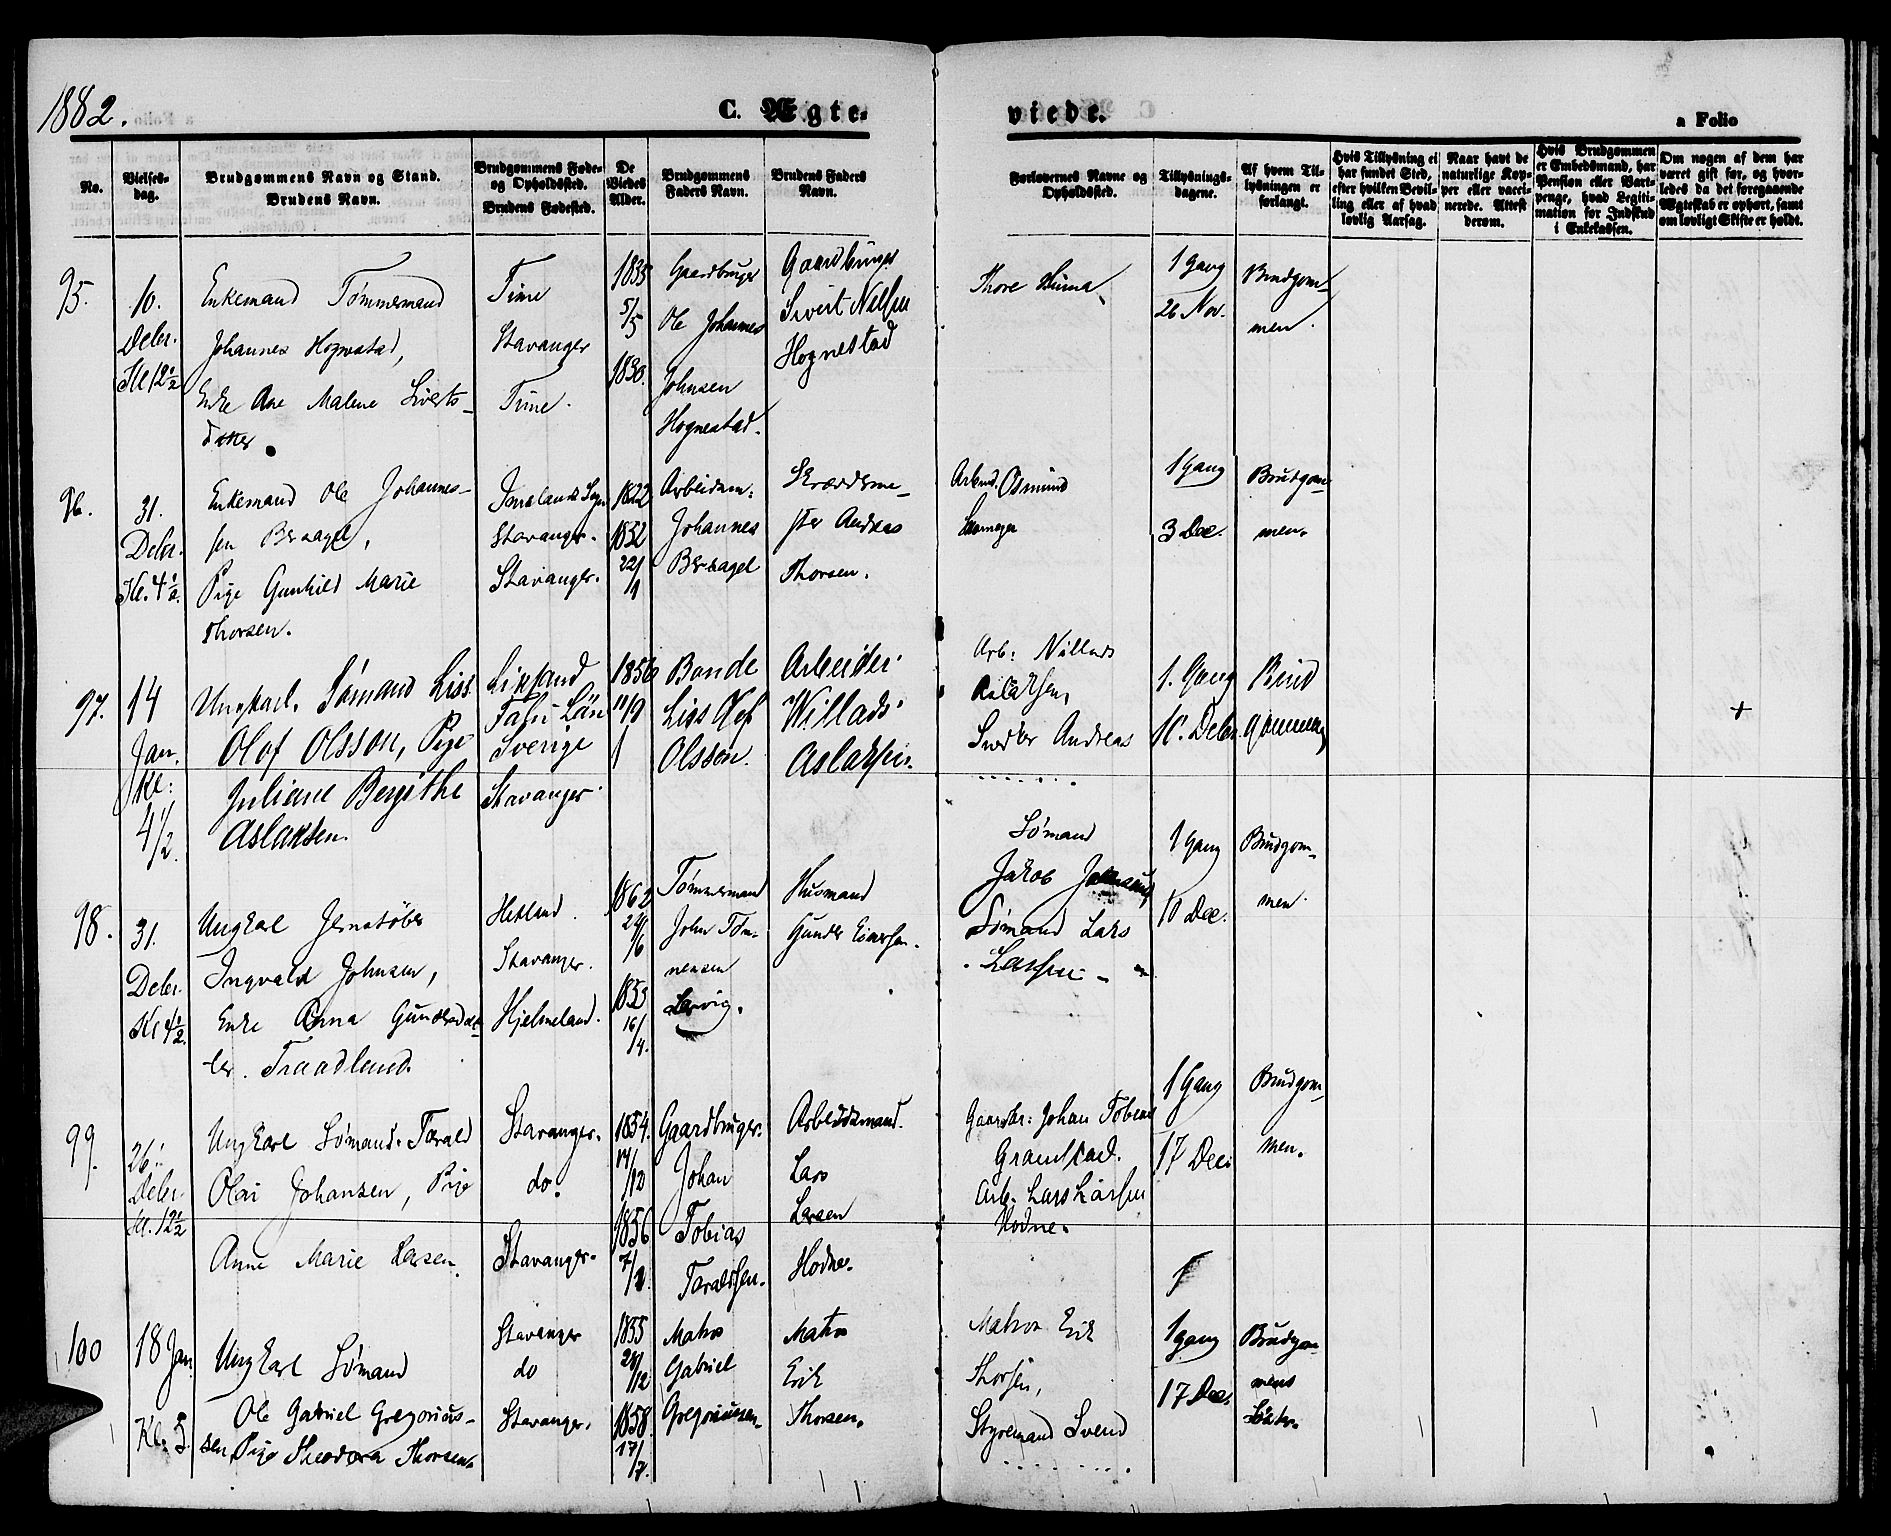 1882.
C. Ægte-
viede.
a Folio
No.
Vielses-
dag.
Brudgommens Navn og Stand.
Brudens Navn.
Brudgommens Føde-
og Opholdssted.
Brudens Fødested.
De
Viedes
Alder.
Brudgommens
Faders Navn.
Brudens Faders
Navn.
Forlovernes Navne og
Opholdssted.
Tillysnings-
dagene.
Af hvem Til-
lysningen er
forlangt.
Hvis Tillysning ei
har fundet Sted,
efter hvilken Bevil-
ling eller af hvad
lovlig Aarsag.
Naar havt de
naturlige Kop-
per eller vacci-
nerede. Attest
derom.
Hvis Brudgommen
er Embedsmand, har
Pension eller Vart-
penge, hvad Legiti-
mation for Indskud
i Enkekassen.
Om nogen af dem har
været gift før, og hvor-
ledes da det foregaaende
Ægteskab er ophørt, samt
om lovligt Skifte er holdt.
95.
10.
Debr.
Kl 12½
Enkemand Tømmermand
Johannes Hognestad,
Enke Ane Malene Siverts-
datter.
Time
Stavanger
Time.
1835
5/5
1830.
Gaardbruger
Ole Johannes
Johnsen
Hognestad.
Gaardbruger
Sivert Nilsen
Hognestad
Thore
1 Gang
26 Nov.
Brudgom-
men.
96.
31.
Debr.
Kl. 4½.
Enkemand Ole Johannes-
sen Bersagel,
Pige Gunhild Marie
Thorsen.
Stavanger.
Stavanger.
1822
1852
22/1
Arbeidsm:
Johannes
Bersagel
Skrædderme-
ster Andreas
Thorsen.
Arbmd. Osmund
1 Gang
3 Dec.
Brudgom-
men.
97.
14
Jan.
Kl:
4½.
Ungkarl. Sømand Liss
Olof Olsson, Pige
Juliane Bergithe
Aslaksen.
Falu Län
Sverige
Stavanger.
1856
11/9
Bonde
Liss Olof
Olsson.
Arbeider
Willads
Aslaksen.
Arb: Villads
Aslaksen,
Snedker Andreas
1. Gang
10. Debr.
Brud
gommen
+
98.
31.
Debr.
Kl 4½.
Ungkarl Jernstøber
Ingvald Johnsen,
Enke Anna Gundersdat-
ter. Traadlund.
Hetland.
Stavanger.
Hjelmeland.
1862
24/6
1853
16/4.
Tømmermand
John Tøn-
nessen
Lervig.
Husmand
Gunder Einersen.
Sømand
Jakob
Sømand Lars
Larsen
1 Gang
10 Dec.
Brudgom-
men.
99.
26.
Debr.
Kl. 12½
Ungkarl Sømand. Tarald
Olai Johansen, Pige
Anne Marie Larsen.
Stavanger.
do.
Stavanger.
1854.
14/12
1856
Gaardbruger.
Johan
Tobias
Taraldsen.
Arbeidsmand.
Lars
Larsen
Hodne.
Gaardbr: Johan Tobias
Gramstad.
Arb. Lars Larsen
Hodne.
1 Gang
17 Dec.
Brudgom-
men.
100
18 Jan.
Kl. 5.
Ungkarl Sømand
Ole Gabriel Gregorius-
sen, Pige Theodora Thorsen.
Stavanger
do
Stavanger.
1855
28/12
1858.
17/7.
Matros
Gabriel
Gregoriussen
Matros
Erik
Thorsen.
Matros Erik
Thorsen,
Styremand Svend
1 gang
17 Dec.
Brudgom-
mens